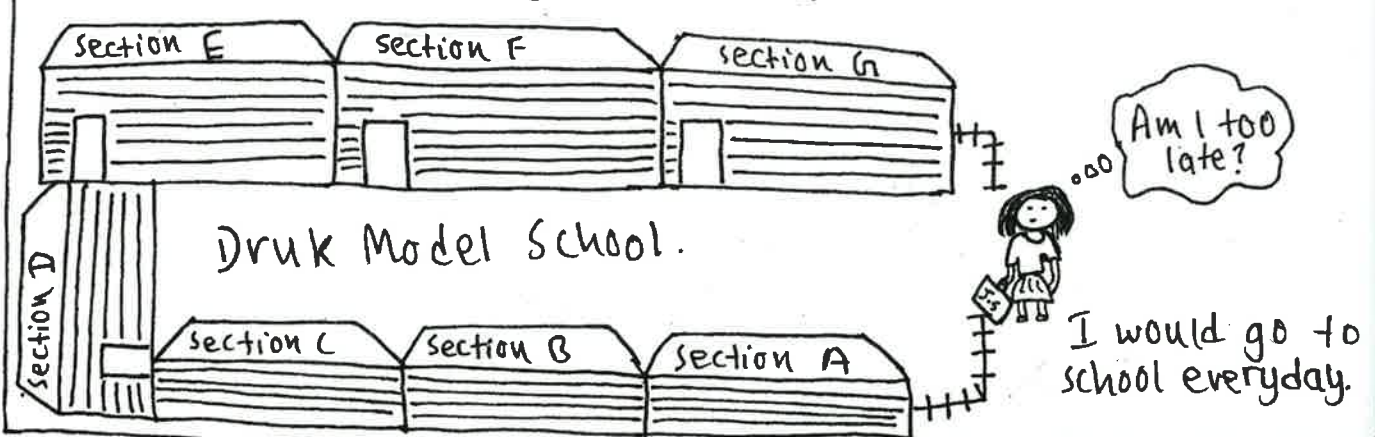 section E
section F
section G
Am I too
late?
section D
Druk Model School.
section C
section B
section A
S.S
I would go to
school everyday.